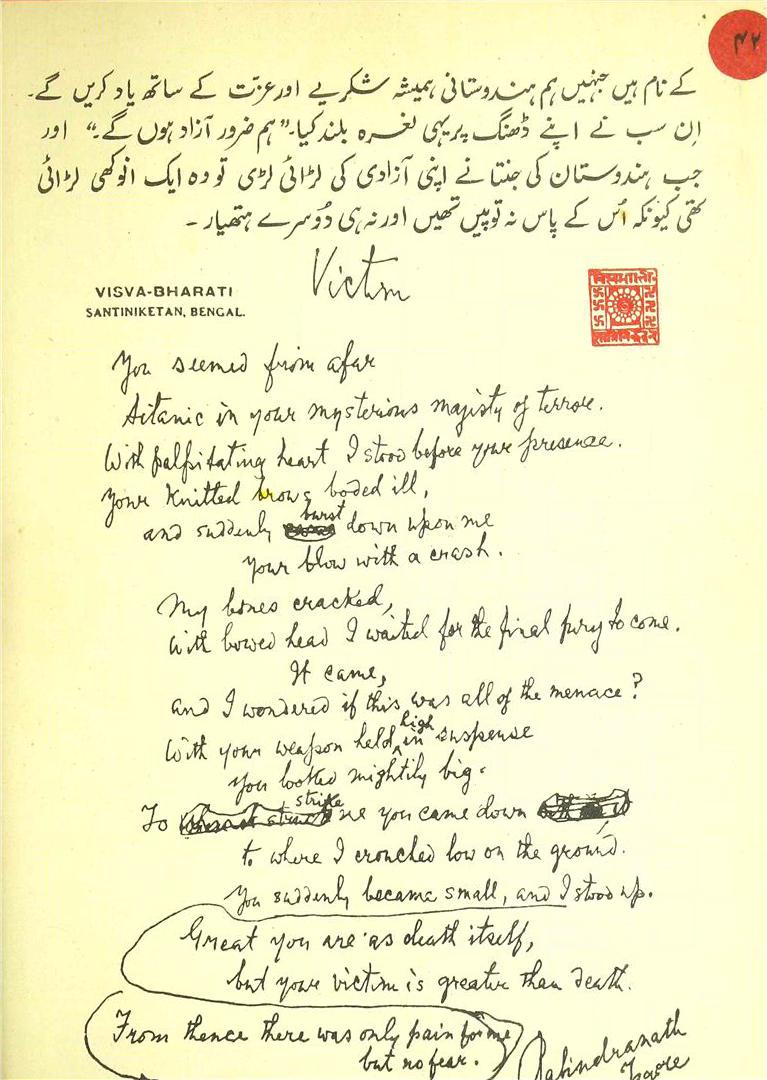 ۴۲
کے نام ہیں جنہیں ہم ہندوستانی ہمیشہ شکریے اور عزّت کے ساتھ یاد کریں گے۔
اِن سب نے اپنے ڈھنگ پر یہی نعرہ بلند کیا۔ “ہم ضرور آزاد ہوں گے۔” اور
جب ہندوستان کی جنتا نے اپنی آزادی کی لڑائی لڑی تو وہ ایک انوکھی لڑائی
تھی کیونکہ اُس کے پاس نہ توپیں تھیں اور نہ ہی دُوسرے ہتھیار ۔
Victim
VISVA-BHARATI
SANTINIKETAN, BENGAL.
You seemed from afar
titanic in your mysterious majisty of terror.
With palpitating heart I stood before your presence.
Your knitted brows boded ill,
and suddenly burst down upon me
your blow with a crash.
My bones cracked,
with bowed head I waited for the final fury to come.
It came,
and I wondered if this was all of the menace?
With your weapon held high in suspense
you looked mightily big.
To strike me you came down
to where I crouched low on the ground.
You suddenly became small, and I stood up.
Great you are as death itself,
but your victim is greater than death.
From thence there was only pain for me
but no fear.
Rabindranath
Tagore